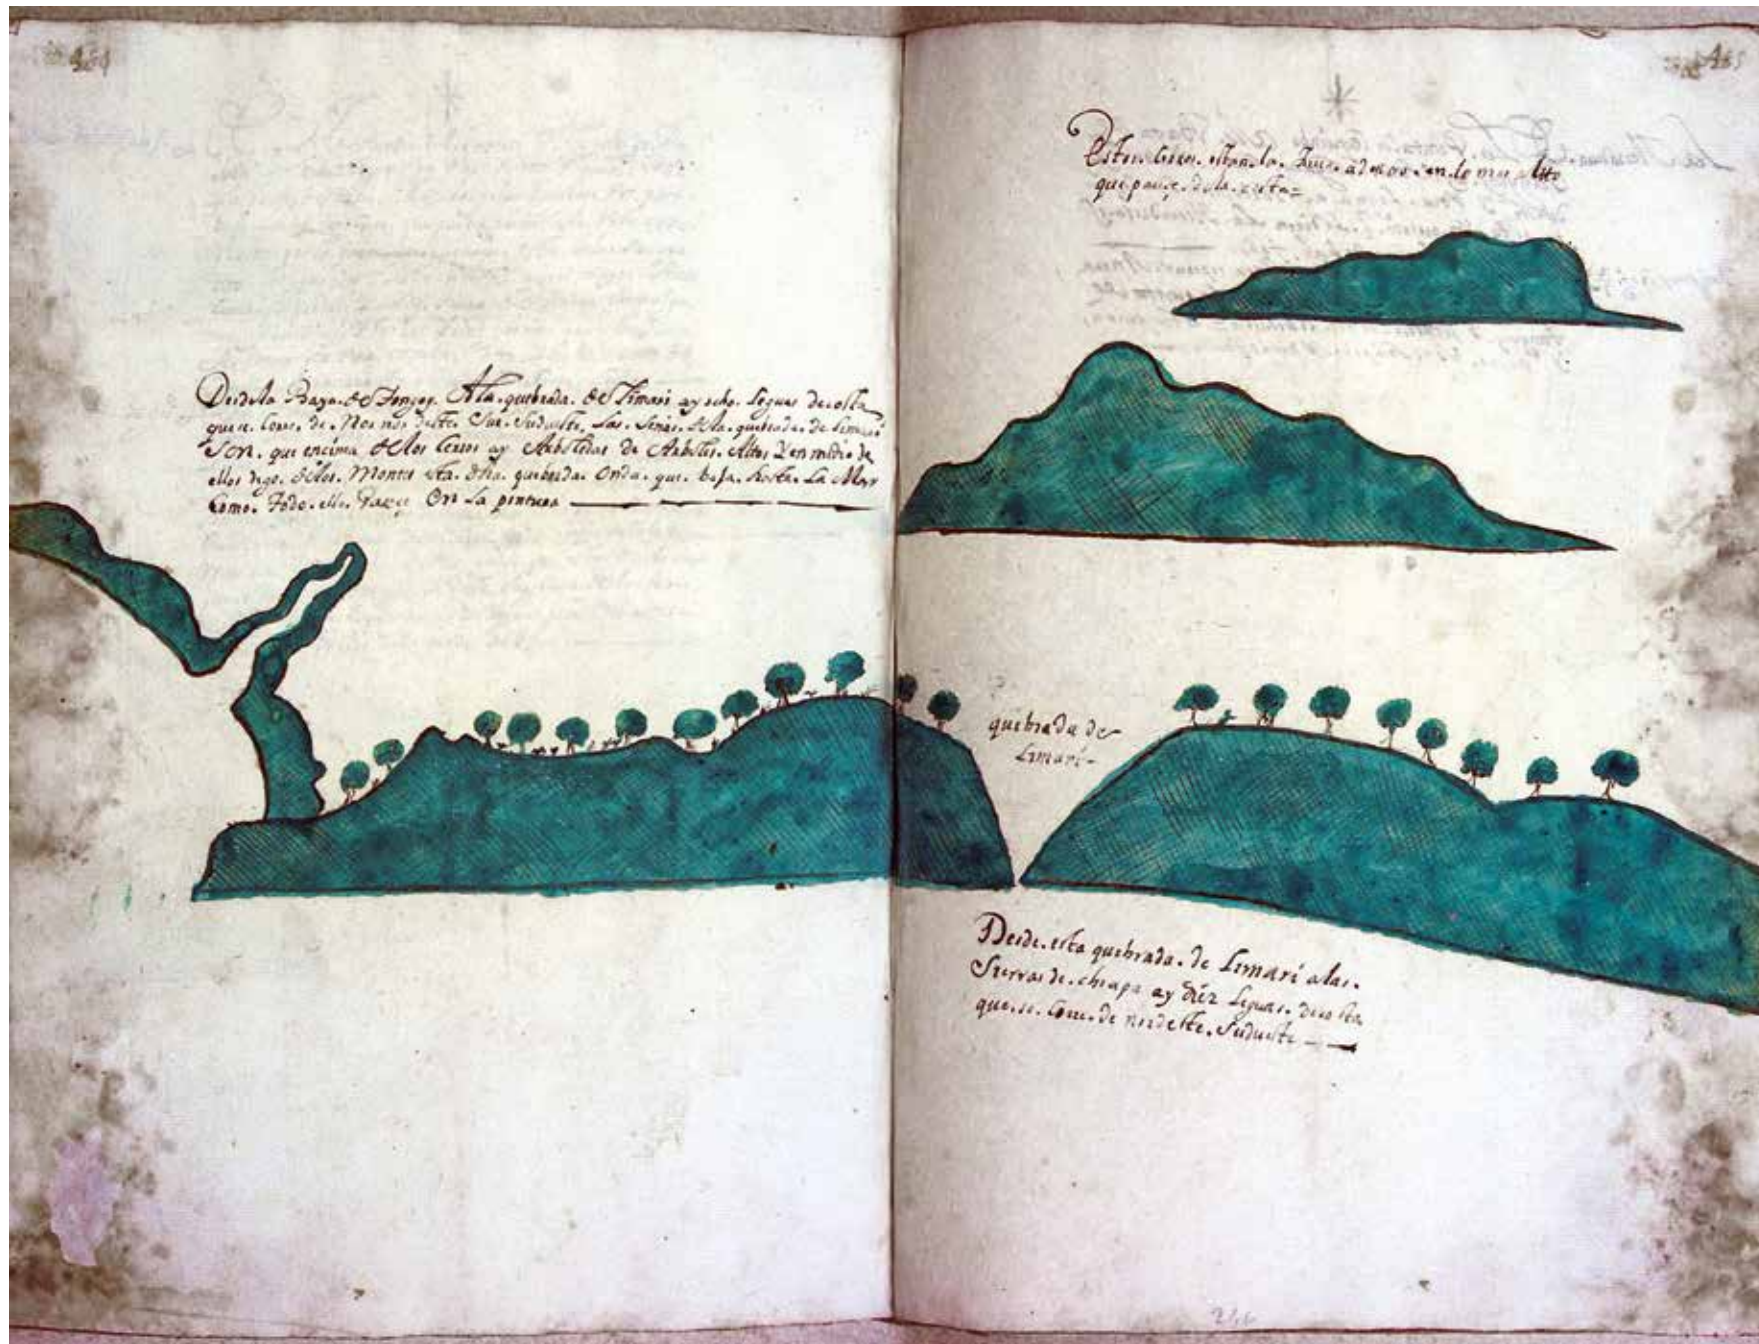 Desde la Baya de Tongoy A la quebrada de Limari ay ocho leguas de costa
que se corre de Nornordeste Sur Sudueste, las senas de la quebrada de limari
son. que encima de los cerros ay Arboledas de Arboles Altos y en midio de
ellos digo de los Montes esta dha quebrada onda. que. baja. hasta La Mar
como. todo. ello. Pareçe En La pintura
Estos cerros. estan la tierra adentro en lo mas alto
que pareçe de la costa=
quebrada de
Limari-
Desde esta quebrada. de Limari a las.
Sierras de. chiapa ay diez leguas. de costa
que. se. corre. de nordeste. Sudueste